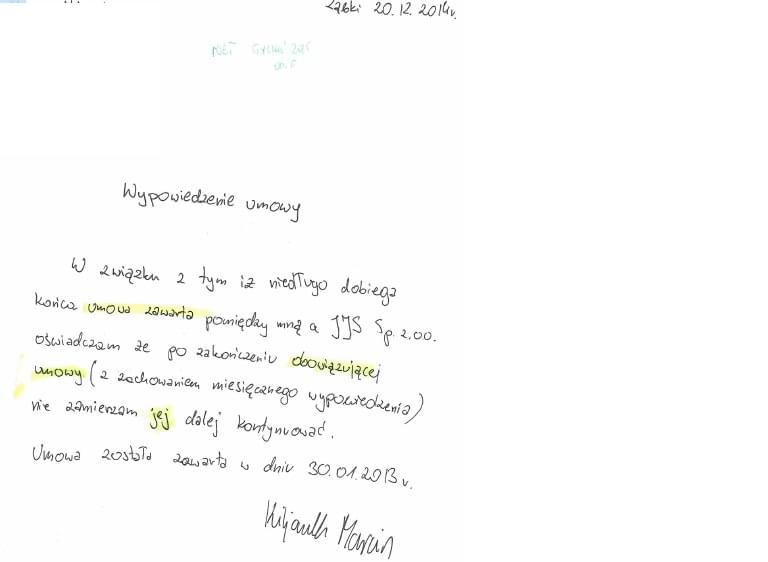 Ząbki 20.12.2014r.
Wypowiedzenie umowy
W związku z tym iż niedługo dobiega
końca umowa zawarta pomiędzy mną a JJS Sp. z.o.o.
oświadczam że po zakończeniu obowiązującej
umowy (z zachowaniem miesięcznego wypowiedzenia)
nie zamierzam jej dalej kontynuować.
Umowa została zawarta w dniu 30.01.2013r.
Marcin